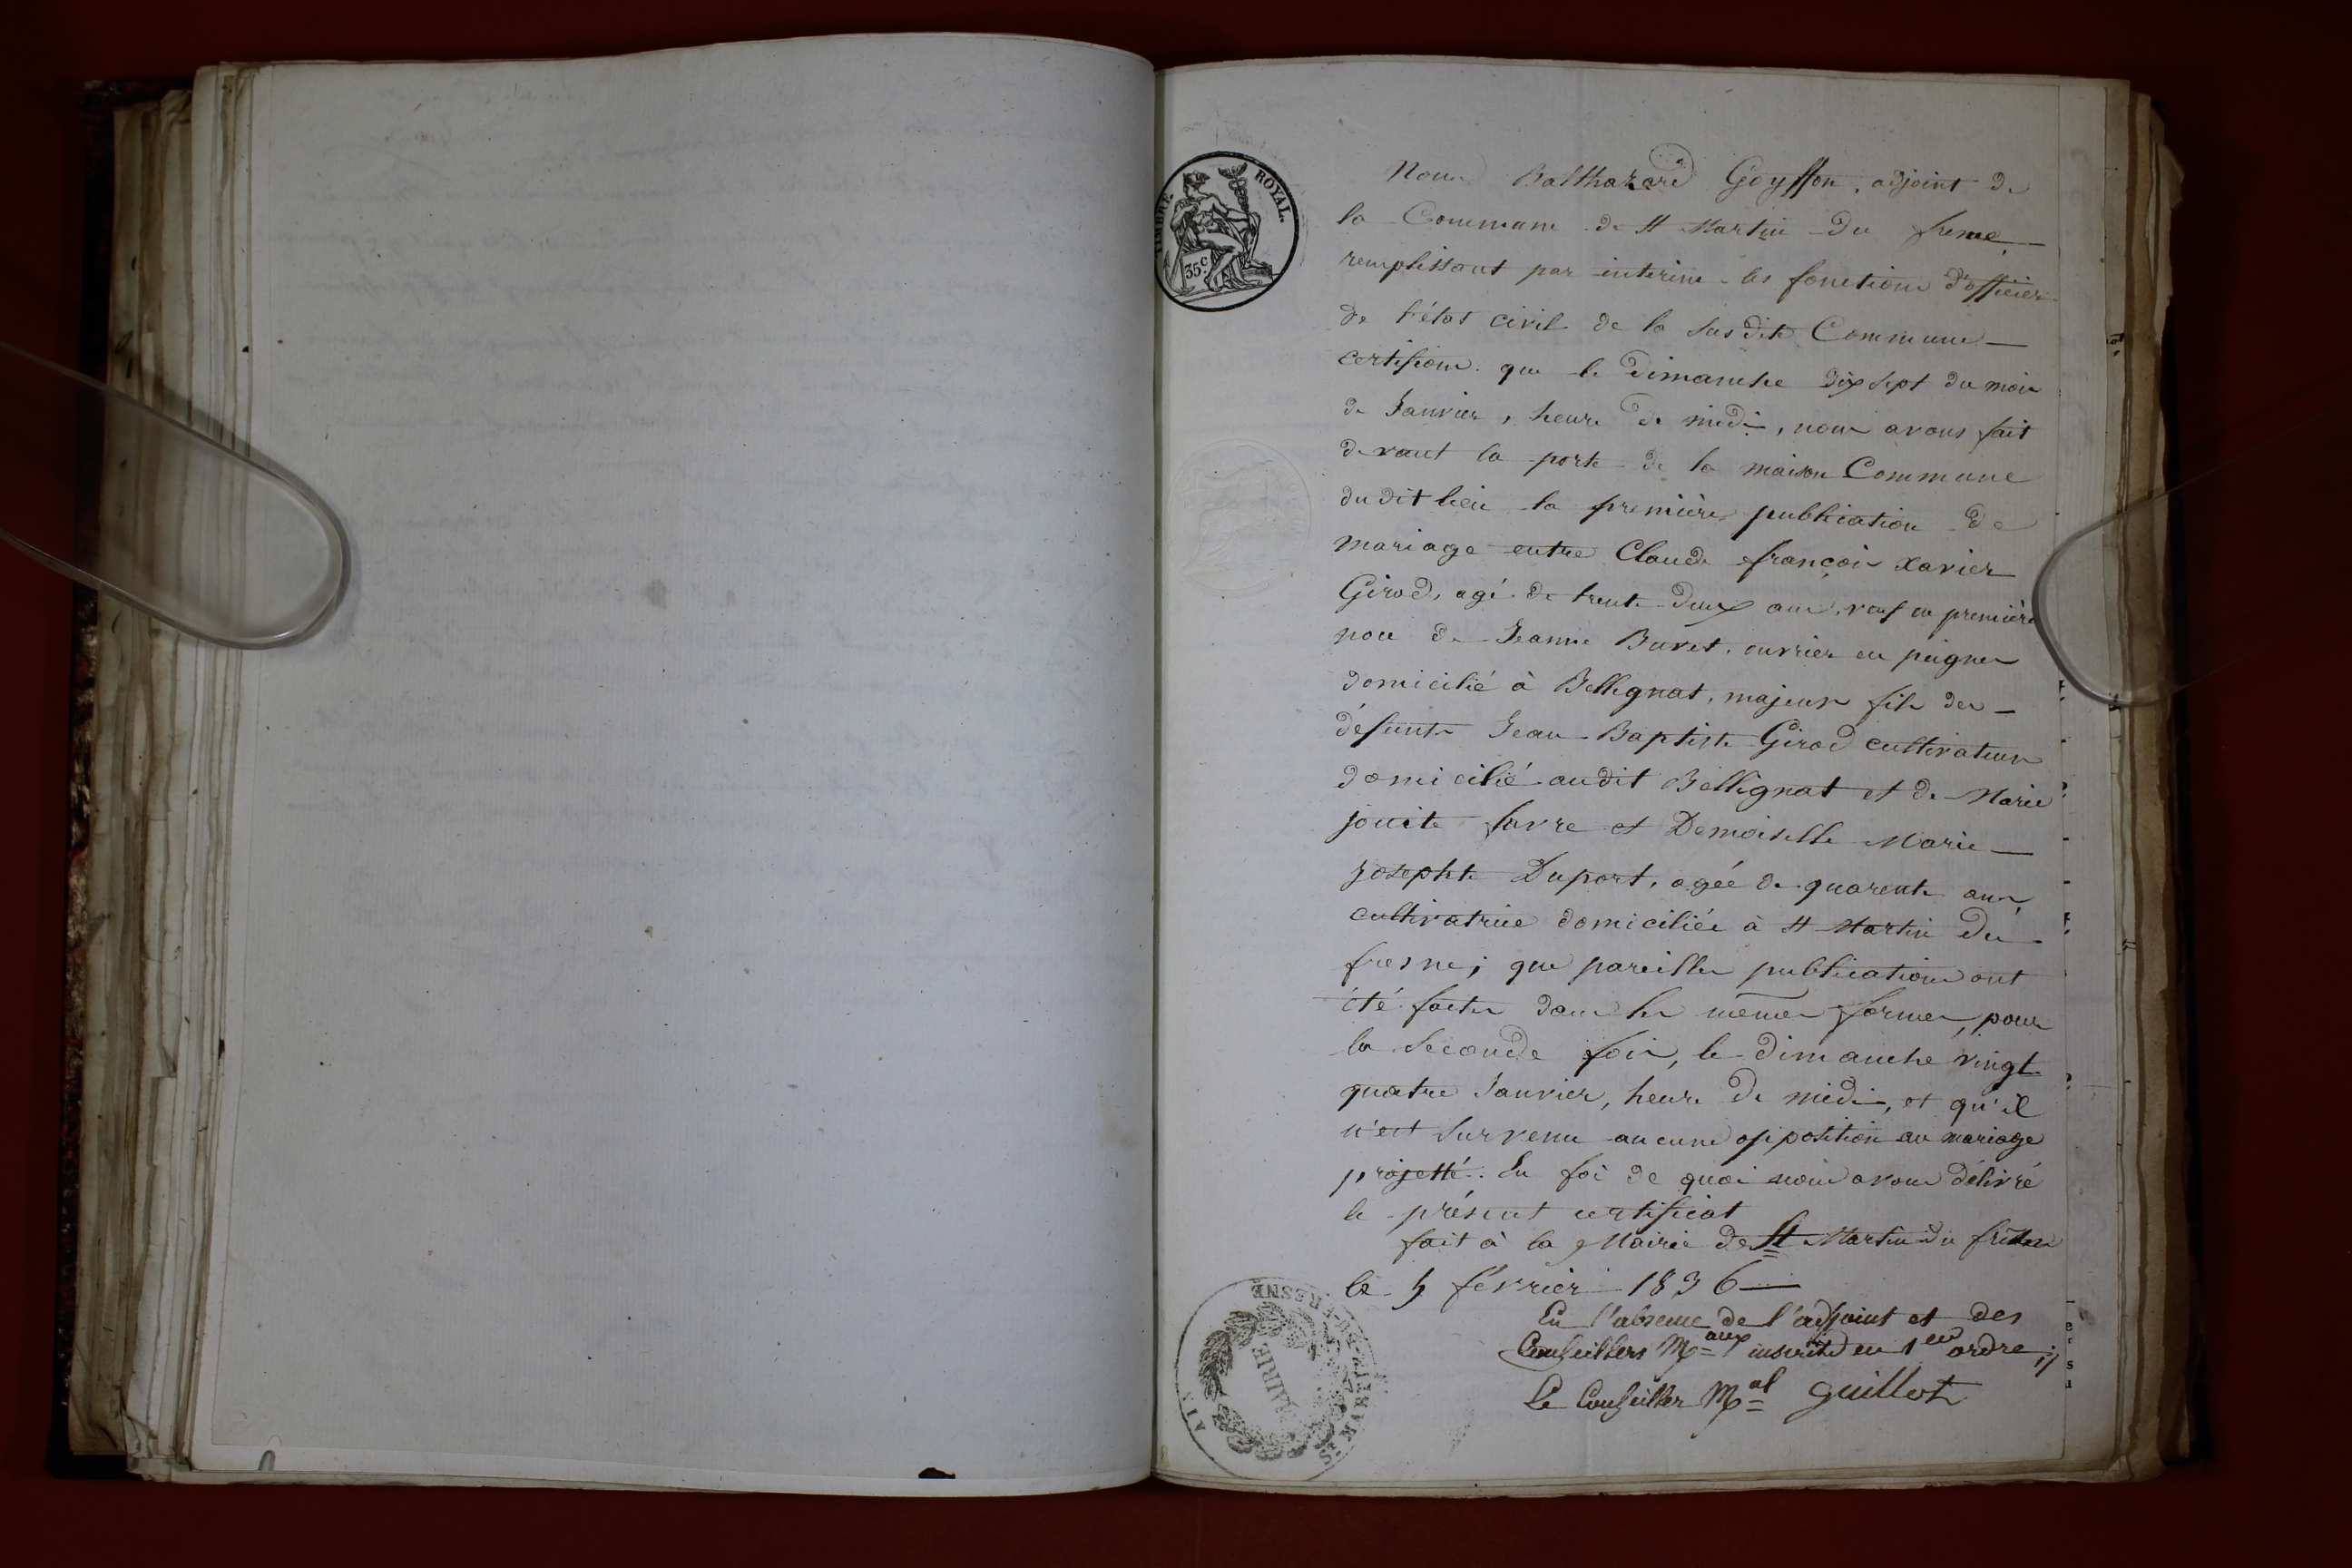 TIMBRE ROYAL.
35.c
Nous Balthazard Goyffon, adjoint de
la Commune de St Martin du fresne
remplissant par interim les fonctions d'officier
de l'état civil de la susdite Commune —
certifions que le dimanche dix sept du mois
de Janvier, heure de midi, nous avons fait
devant la porte de la maison Commune
dudit lieu la première publication de
mariage entre Claude françois Xavier
Girod, agé de trente deux ans, veuf en première
noce de Jeanne Buret, ouvrier en peignes
domicilié à Bellignat, majeur fils des —
défunts Jean Baptiste Girod cultivateur
domicilié audit Bellignat et de Marie
favre et Demoiselle Marie —
Josephte Duport, agée de quarente ans,
cultivatrice domiciliée à St Martin du
fresne; que pareilles publications ont
été faites dans les mêmes formes, pour
la seconde fois, le dimanche vingt
quatre Janvier, heure de midi, et qu'il
n'est survenu aucune opposition au mariage
projetté. En foi de quoi nous avons délivré
le présent certificat
fait à la Mairie de St Martin du fresne
le février 1836 —
En l'absence de l'adjoint et des
Conseillers Maux inscrits en 1er ordre
Le Conseiller Mal Guillot
MAIRIE ST MARTIN-DU-FRESNE
AIN